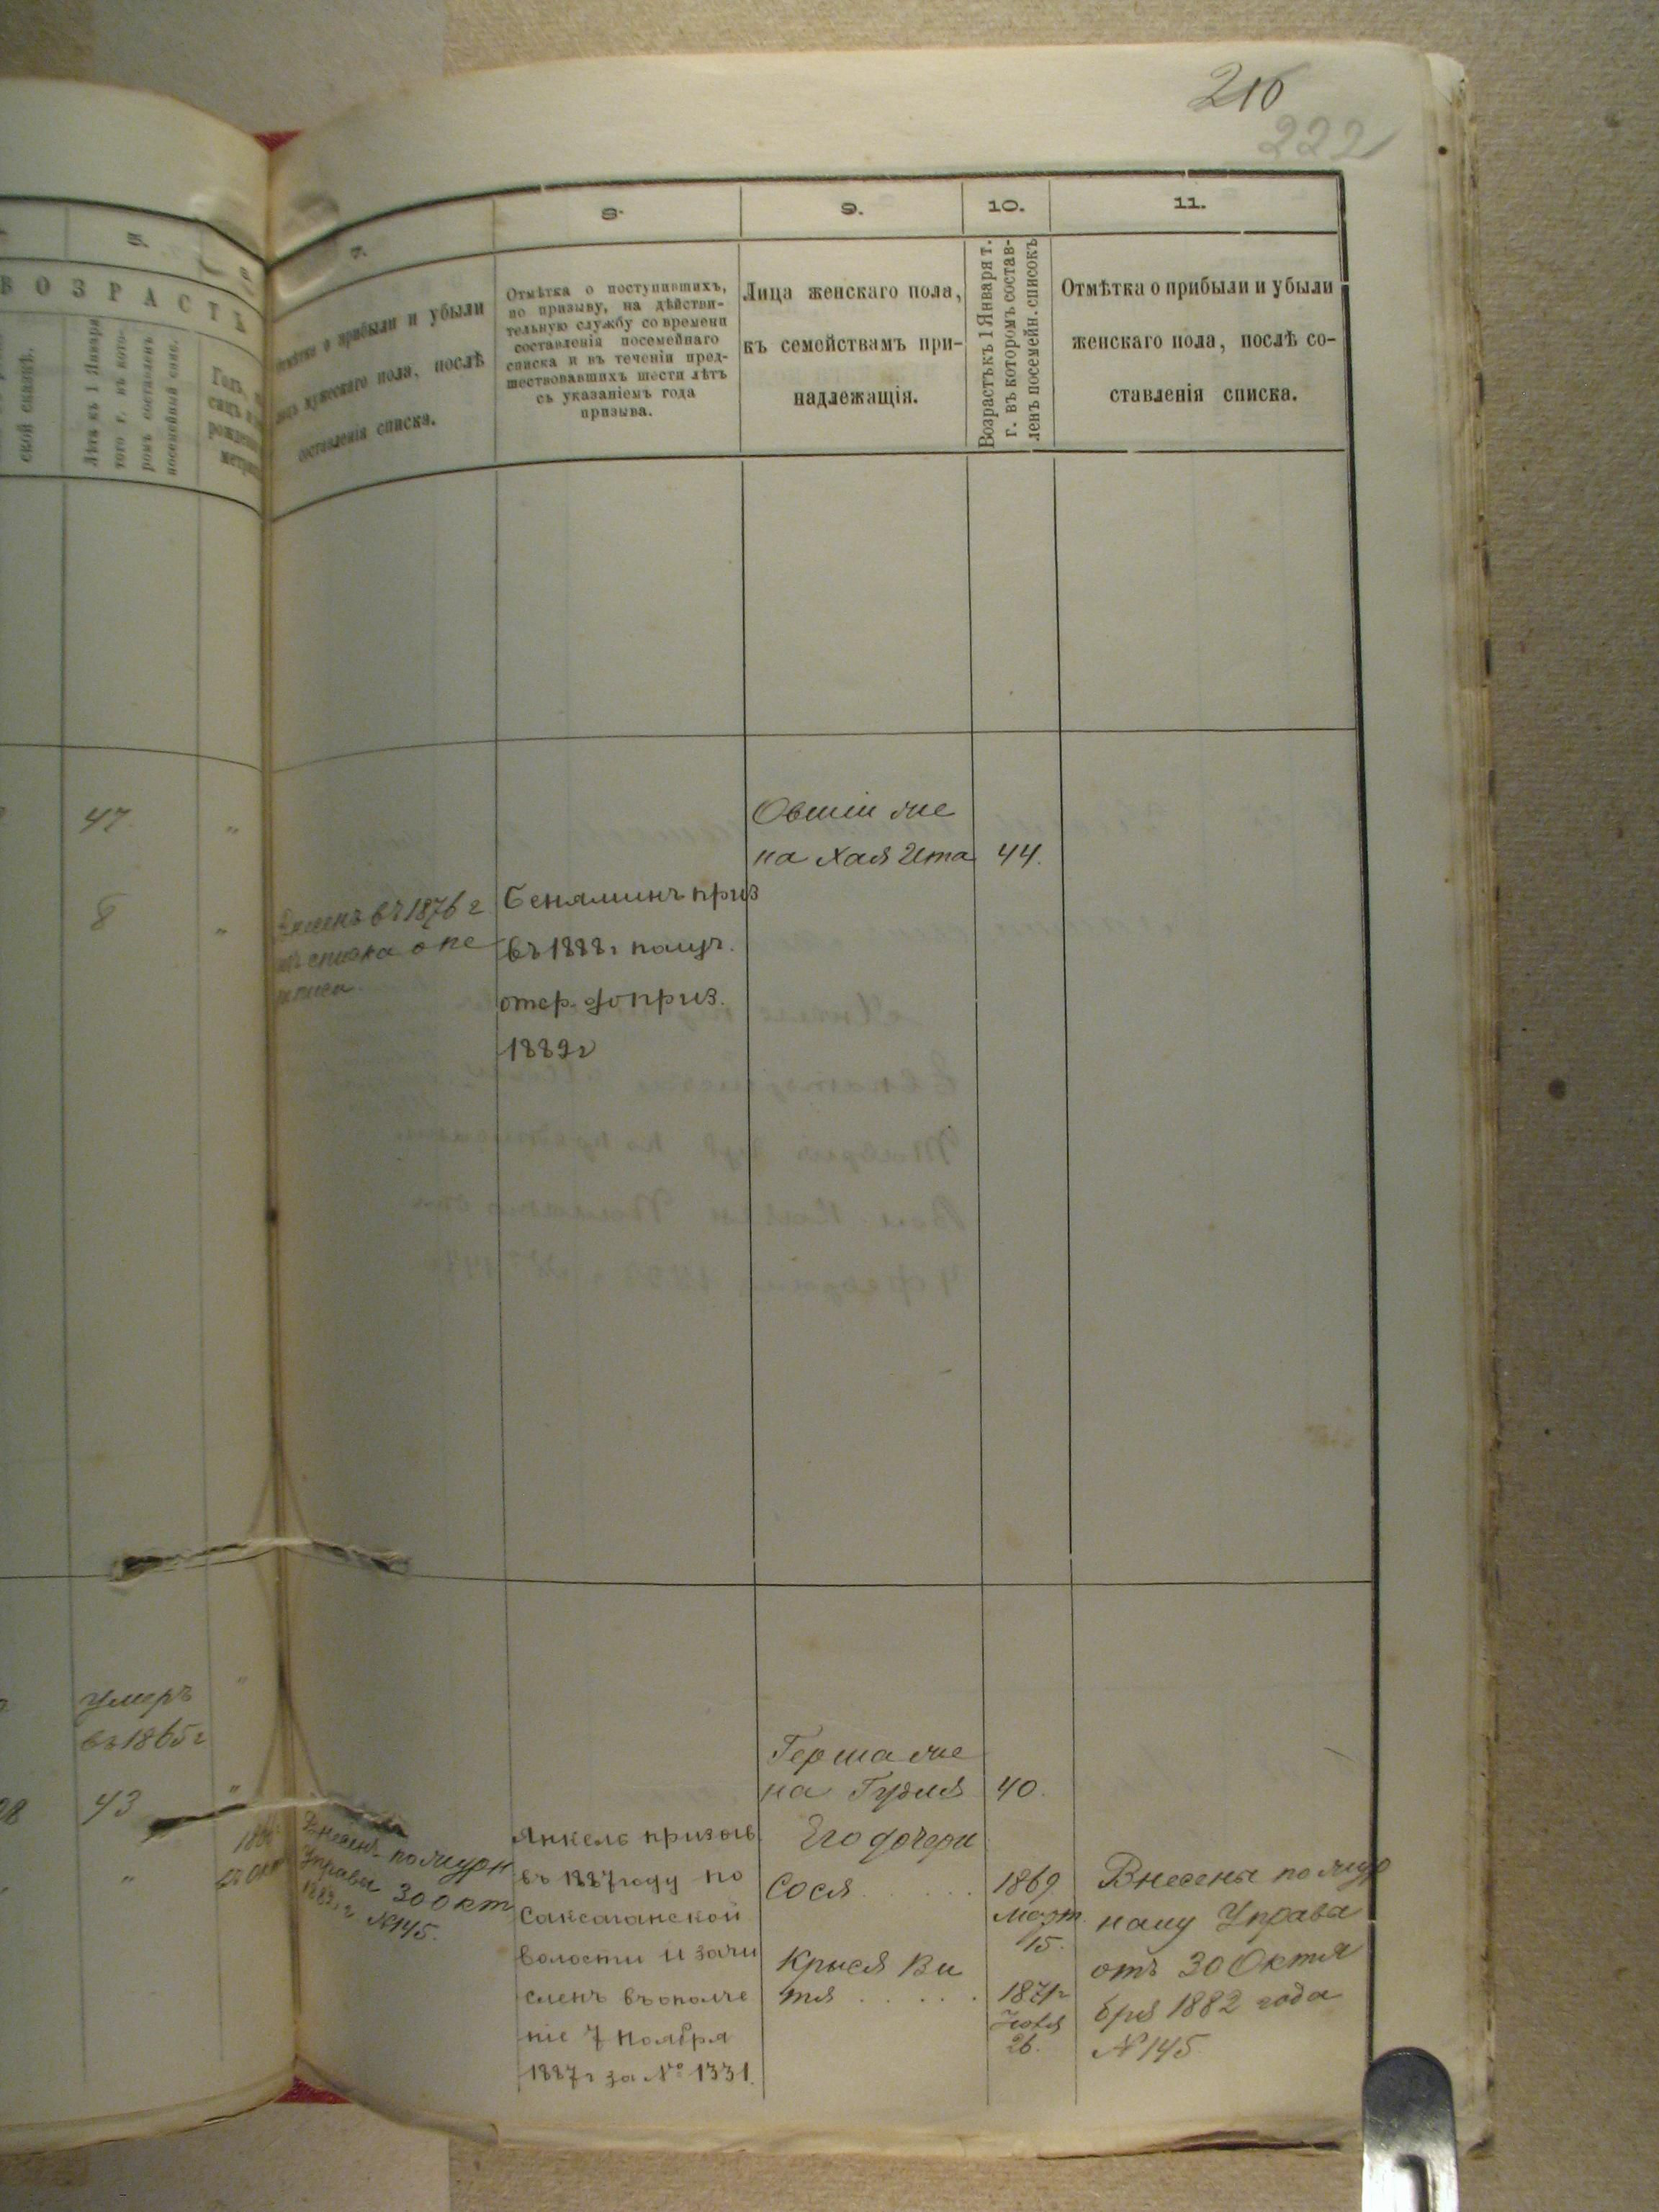 216
222
5.
7.
8.
9.
10.
11.
ВОЗРАСТЪ
ской сказкѣ.
Лѣта къ 1 Января
того г. въ кото-
ромъ составленъ
посемейный спис.
Отмѣтка о прибыли и убыли
лицъ мужескаго пола, послѣ
составленія списка.
Отмѣтка о поступившихъ,
по призыву, на дѣйстви-
тельную службу со времени
составленія посемейнаго
списка и въ теченіи пред-
шествовавшихъ шести лѣтъ
съ указаніемъ года
призыва.
Лица женскаго пола,
къ семействамъ при-
надлежащія.
Возрастъ къ 1 Января т.
г. въ которомъ состав-
ленъ посемейн. списокъ
Отмѣтка о прибыли и убыли
женскаго пола, послѣ со-
ставленія списка.
47
8
въ 1876 г
списка о пе
Беняминъ приз
въ 1888 г получ.
отср. до приз.
1889 г
Овшіи же
на Хая Ита 44.
умеръ
въ 1865 г
43
Внесенъ по журн
Управы 30 окт
1882 г №145.
Янкель призыв
въ 1887 году по
Саксаганской
волости и зачи
сленъ въ ополче
ніе 7 ноября
1887 г за № 1331.
Герша же
на Гудля 40.
Его дочери
Сося . . . . . 1869
Март.
15.
Крыся Ви
тя . . . . . 1871 г
26.
Внесены по жур
налу Управы
отъ 30 Октя
бря 1882 года
№ 145